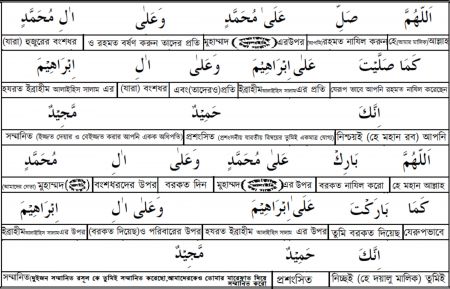 اَللّٰهُمَّ صَلِّ عَلٰى مُحَمَّدٍ وَعَلٰى اٰلِ مُحَمَّدٍ
(যারা) হুজুরের বংশধর ও রহমত বর্ষণ করুন তাদের প্রতি মুহাম্মাদ এরউপর রহমত নাযিল করুন হে(আমার মালিক)আল্লাহ
كَمَا صَلَّيْتَ عَلٰى اِبْرَاهِيْمَ وَعَلٰى اٰلِ اِبْرَاهِيْمَ
হযরত ইব্রাহীম আলাইহিস সালাম এর (যারা) বংশধর এবং(তাদেরও)প্রতি ইব্রাহীম আলাইহিস সালাম এর প্রতি যেরূপ ভাবে আপনি রহমত নাযিল করেছেন
اِنَّكَ حَمِيْدٌ مَّجِيْدٌ
সম্মানিত (ইজ্জত দেয়ার ও বেইজ্জত করার আপনি একক অধিপতি) প্রশংসিত (প্রশংসনীয় যাবতীয় বিষয়ের তুমিই একমাত্র যোগ্য) নিশ্চয়ই (হে মহান রব) আপনি
اَللّٰهُمَّ بَارِكْ عَلٰى مُحَمَّدٍ وَعَلٰى اٰلِ مُحَمَّدٍ
(আমাদের নেতা) মুহাম্মদ এর বংশধরদের উপর বরকত দিন মুহাম্মদ এর উপর বরকত নাযিল করো হে মহান আল্লাহ
كَمَا بَارَكْتَ عَلٰى اِبْرَاهِيْمَ وَعَلٰى اٰلِ اِبْرَاهِيْمَ
ইব্রাহীম আলাইহিস সালাম-এর উপর (বরকত দিয়েছ)ও পরিবারের উপর হযরত ইব্রাহীম আলাইহিস সালাম এর উপর তুমি বরকত দিয়েছ যেরূপভাবে
اِنَّكَ حَمِيْدٌ مَّجِيْدٌ
সম্মানিত প্রশংসিত নিচ্ছই (হে দয়ালু মালিক) তুমিই